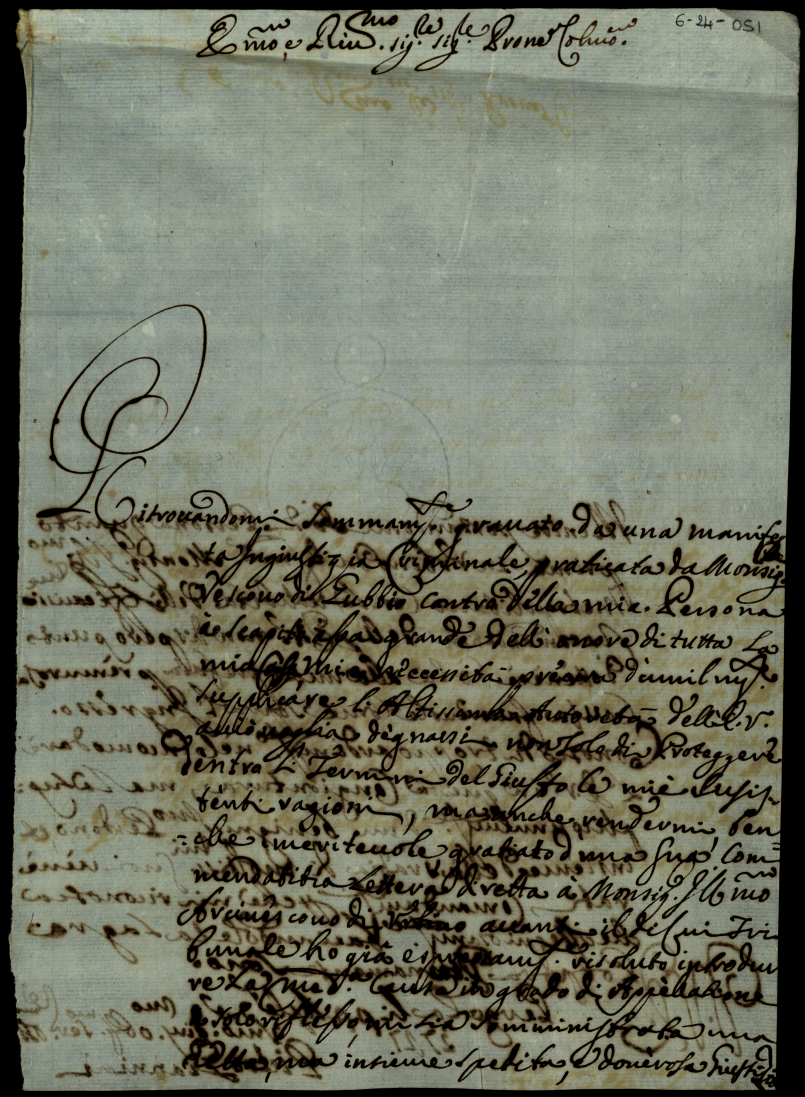 6-24-051
E.mo e Riu.mo sig.re sig.re Prone Colmo.
Ritrouandomi sommam.te grauato da una manifes
ta Ingiustizia Criminale praticata da Monsig.
Vescouo di Gubbio contro della mia Persona
grande dell'onore di tutta la
mia necessità d'umilm.te
supplicare l'Altissima Autorità dell'E.V.
a uoglia degnarsi non solo di Proteggere
dentro li Termini del Giusto le mie susis-
tenti ragioni, ma anche rendermi, ben
-che imeriteuole, gratiato d'una sua Com
mendatitia Lettera diretta a Monsig. Ill.mo
Arciuescouo di Urbino auanti il di Cui Tri
bunale ho già risoluto introdur
re La med.a Causa in grado di Appellatione
mi sia Amministrata una
retta, ma insieme spedita, e douerosa Giustizia